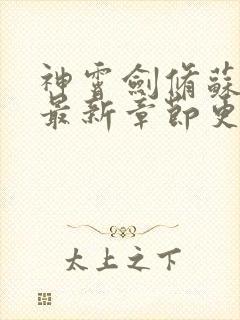 神霄劍脩蘇
最新章節更
太上之下